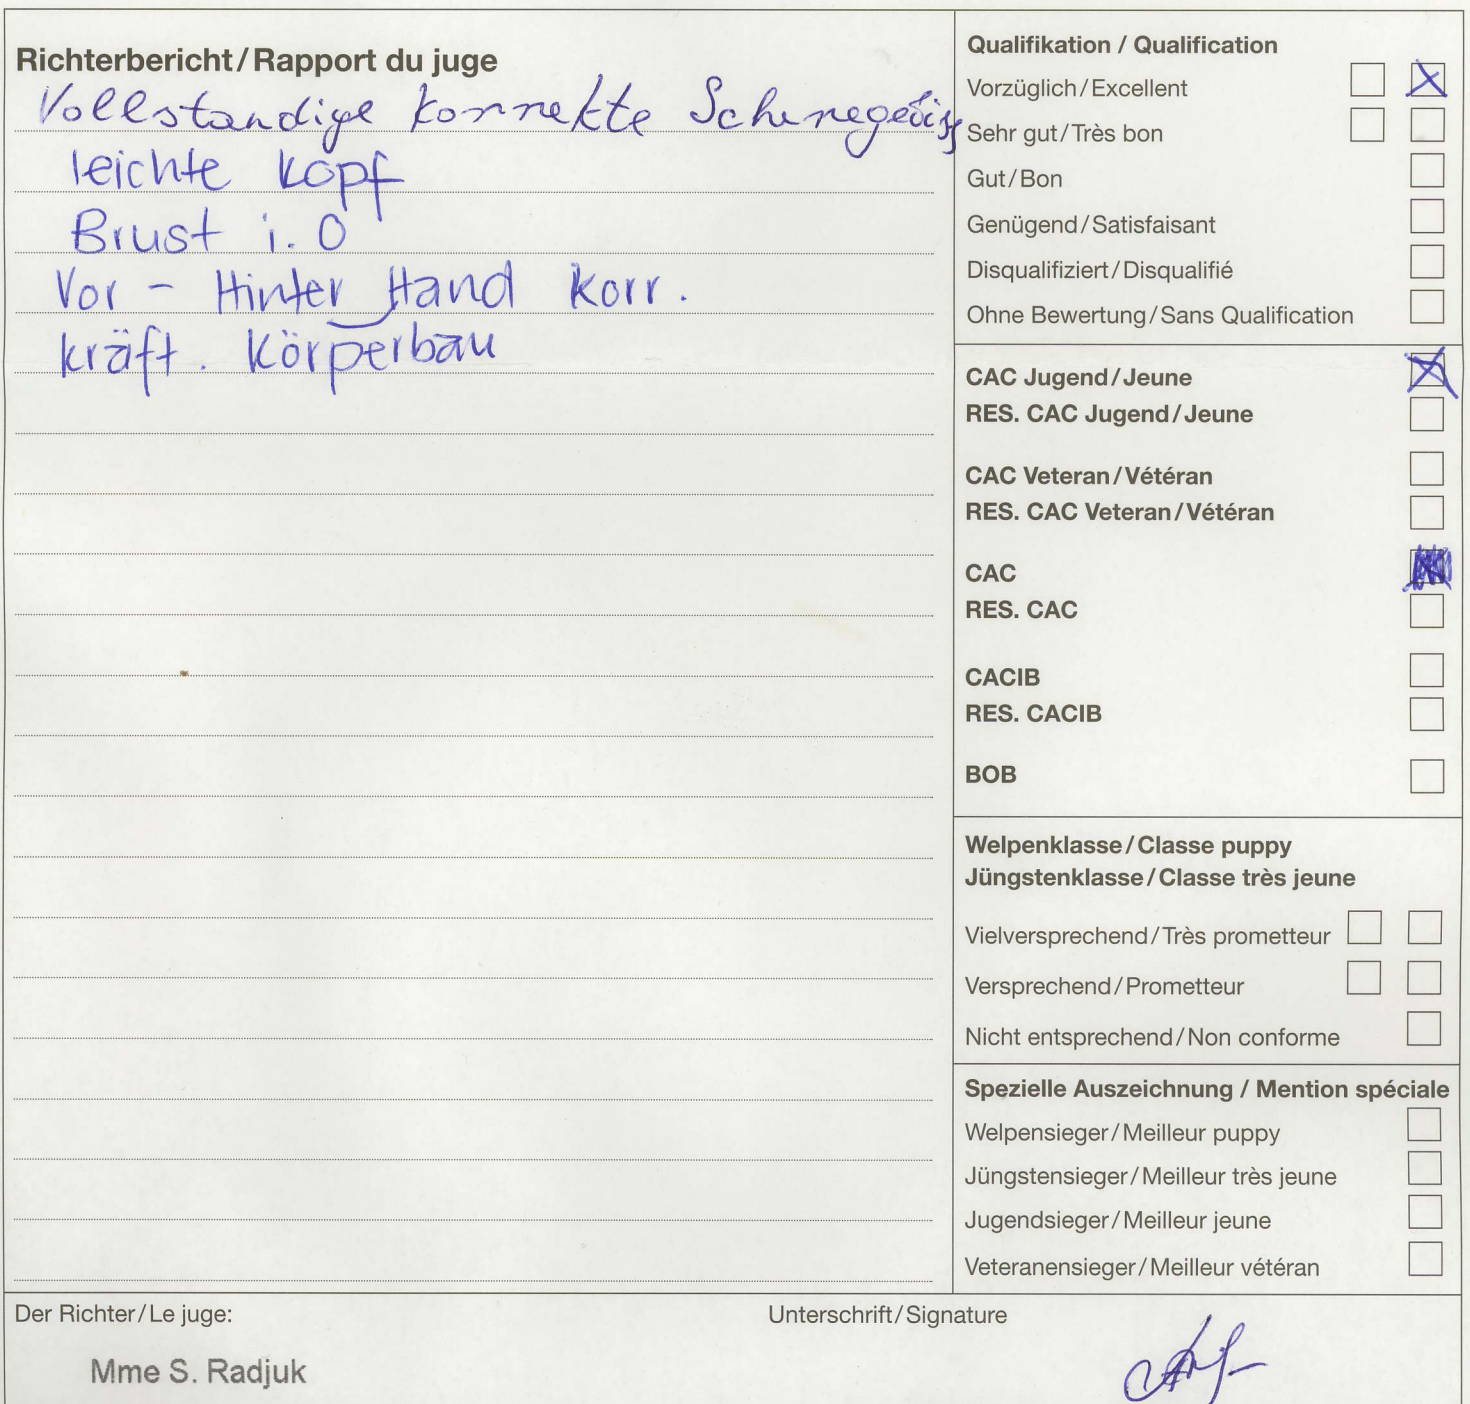 Richterbericht/Rapport du juge
Vollstandige korrekte Scheregebiss
leichte Kopf
Brust i. O
Vor - Hinter Hand korr.
kräft. Körperbau
Qualifikation / Qualification
Vorzüglich/Excellent
Sehr gut/Très bon
Gut/Bon
Genügend/Satisfaisant
Disqualifiziert/Disqualifié
Ohne Bewertung/Sans Qualification
CAC Jugend/Jeune
RES. CAC Jugend/Jeune
CAC Veteran/Vétéran
RES. CAC Veteran/Vétéran
CAC
RES. CAC
CACIB
RES. CACIB
BOB
Welpenklasse/Classe puppy
Jüngstenklasse/Classe très jeune
Vielversprechend/Très prometteur
Versprechend/Prometteur
Nicht entsprechend/Non conforme
Spezielle Auszeichnung / Mention spéciale
Welpensieger/Meilleur puppy
Jüngstensieger/Meilleur très jeune
Jugendsieger/Meilleur jeune
Veteranensieger/Meilleur vétéran
Der Richter/Le juge:
Unterschrift/Signature
Mme S. Radjuk